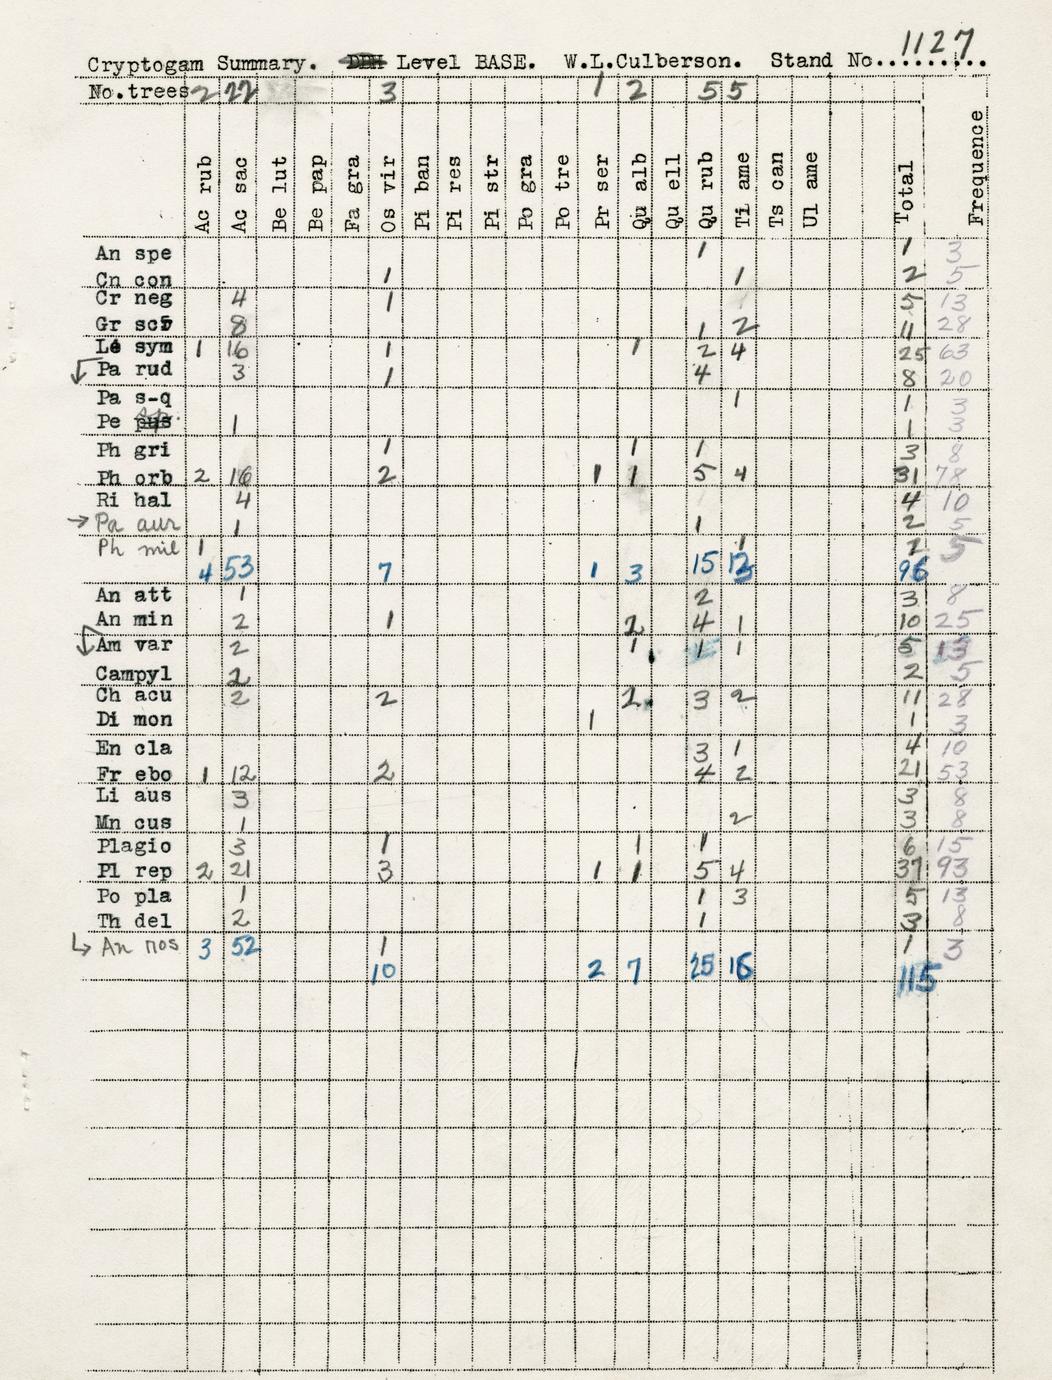 1127
Cryptogam Summary. DBH Level BASE. W.L.Culberson. Stand No..........
No.trees 2 22 3 1 2 5 5
Ac rub Ac sac Be lut Be pap Fa gra Os vir Pi ban Pi res Pi str Po gra Po tre Pr ser Qu alb Qu ell Qu rub Ti ame Ts can Ul ame Total Frequence
An spe 1 1 3
Cn con 1 1 2 5
Cr neg 4 1 5 13
Gr scr 8 1 2 11 28
Le sym 1 16 1 1 2 4 25 63
Pa rud 3 1 4 8 20
Pa s-q 1 1 3
Pe pus sp. 1 1 3
Ph gri 1 1 1 3 8
Ph orb 2 16 2 1 1 5 4 31 78
Ri hal 4 4 10
→ Pa aur 1 1 2 5
Ph mil 1 1 2 5
4 53 7 1 3 15 13 96
An att 1 2 3 8
An min 2 1 2 4 1 10 25
Am var 2 1 1 1 5 13
Campyl 2 2 5
Ch acu 2 2 2 3 2 11 28
Di mon 1 1 3
En cla 3 1 4 10
Fr ebo 1 12 2 4 2 21 53
Li aus 3 3 8
Mn cus 1 2 3 8
Plagio 3 1 1 1 6 15
Pl rep 2 21 3 1 1 5 4 37 93
Po pla 1 1 3 5 13
Th del 2 1 3 8
An nos 1 1 3
3 52 10 2 7 25 16 115